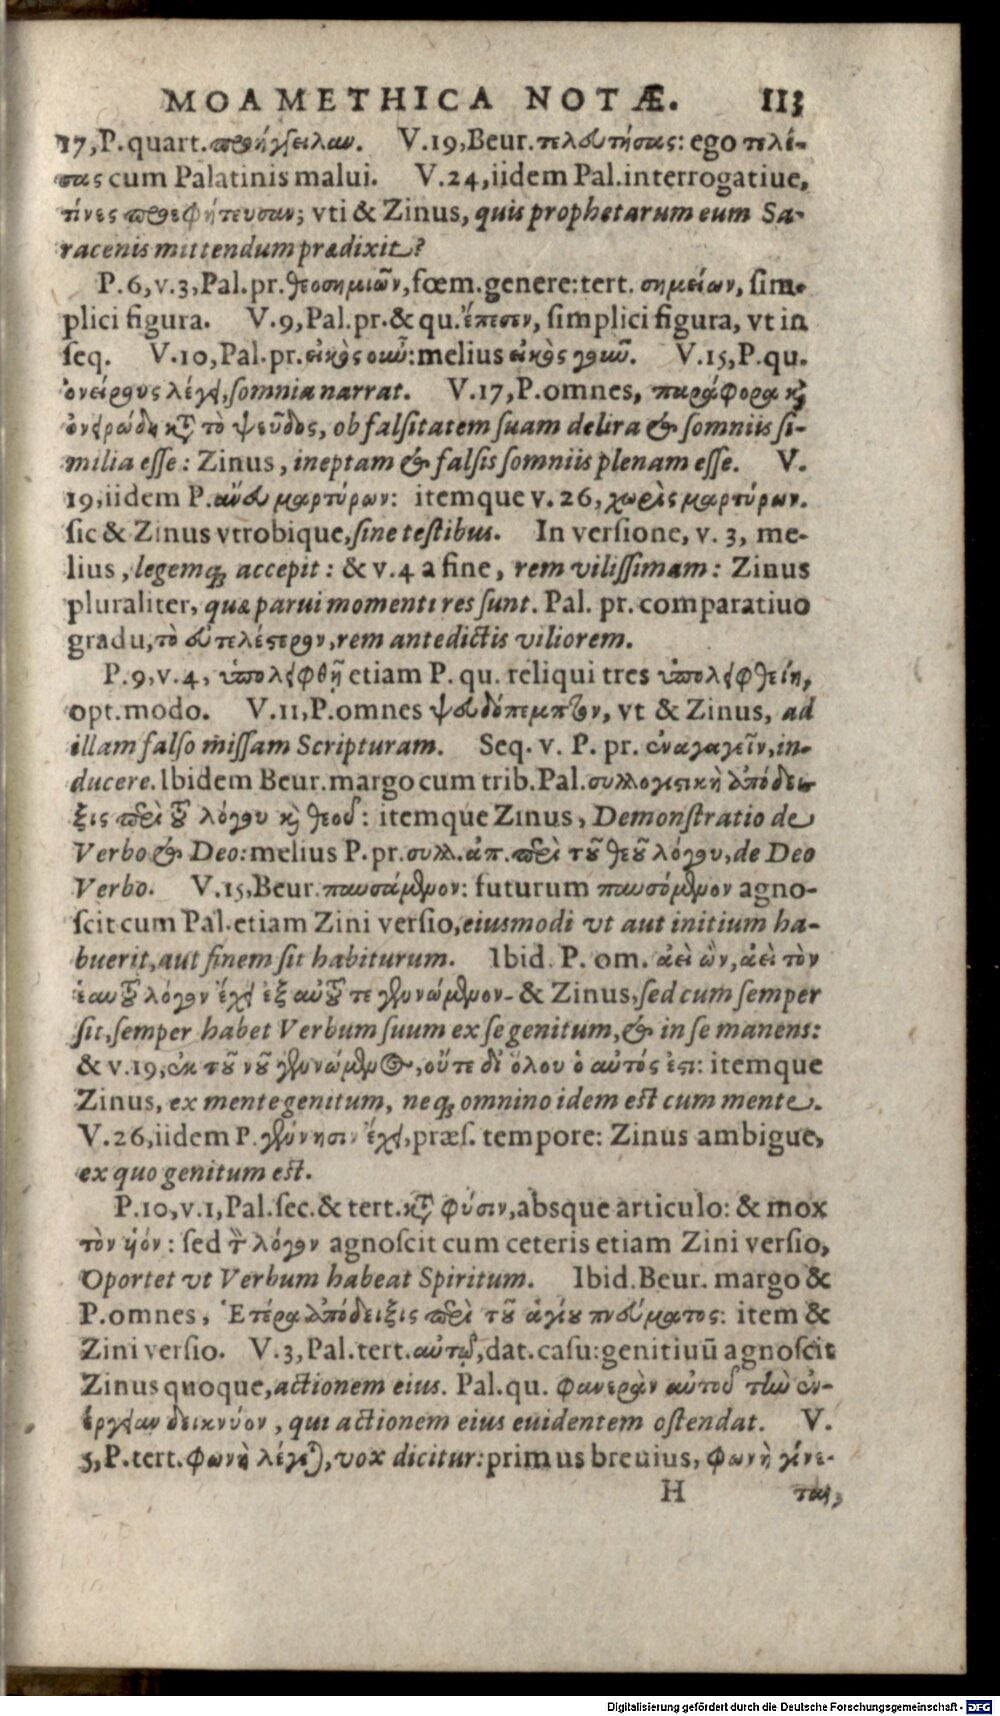 MOAMETHICA NOTÆ. 113
17, P. quart. προήγγειλαν. V. 19, Beur. τελευτήσας: ego τελέ-
σας cum Palatinis malui. V. 24, iidem Pal. interrogatiue,
τίνες προεφήτευσαν; vti & Zinus, quis prophetarum eum Sa-
racenis mittendum prædixit?
P. 6, v. 3, Pal. pr. θεοσημιῶν, fœm. genere: tert. σημείων, sim-
plici figura. V. 9, Pal. pr. & qu. ἔπεσεν, simplici figura, vt in
seq. V. 10, Pal. pr. εἰκὸς οικοῦ: melius εἰκὸς γοικοῦ. V. 15, P. qu.
ὀνείρους λέγει, somnia narrat. V. 17, P. omnes, παράφορα καὶ
ὀνειρώδη κατὰ τὸ ψεῦδος, ob falsitatem suam delira & somniis si-
milia esse: Zinus, ineptam & falsis somniis plenam esse. V.
19, iidem P. ἄνευ μαρτύρων: itemque v. 26, χωρὶς μαρτύρων.
sic & Zinus vtrobique, sine testibus. In versione, v. 3, me-
lius, legemq; accepit: & v. 4 a fine, rem vilissimam: Zinus
pluraliter, quæ parui momenti res sunt. Pal. pr. comparatiuo
gradu, τὸ εὐτελέστερον, rem antedictis viliorem.
P. 9, v. 4, ὑποληφθῇ etiam P. qu. reliqui tres ὑποληφθείη,
opt. modo. V. 11, P. omnes ψευδόπεμπτον, vt & Zinus, ad
illam falso missam Scripturam. Seq. v. P. pr. ἐναγαγεῖν, in-
ducere. Ibidem Beur. margo cum trib. Pal. συλλογιστικὴ ἀπόδει-
ξις περὶ τοῦ λόγου καὶ θεοῦ: itemque Zinus, Demonstratio de
Verbo & Deo: melius P. pr. συλλ. ἀπ. περὶ τοῦ θεοῦ λόγου, de Deo
Verbo. V. 15, Beur. παυσάμενον: futurum παυσόμενον agno-
scit cum Pal. etiam Zini versio, eiusmodi vt aut initium ha-
buerit, aut finem sit habiturum. Ibid. P. om. ἀεὶ ὢν, ἀεὶ τὸν
ἑαυτοῦ λόγον ἔχει ἐξ αὐτοῦ τε γεννώμενον. & Zinus, sed cum semper
sit, semper habet Verbum suum ex se genitum, & in se manens:
& v. 19, ἐκ τοῦ νοῦ γεννώμενος, οὔτε δι' ὅλου ὁ αὐτός ἐστι: itemque
Zinus, ex mente genitum, neq; omnino idem est cum mente.
V. 26, iidem P. γέννησιν ἔχει, præs. tempore: Zinus ambigue,
ex quo genitum est.
P. 10, v. 1, Pal. sec. & tert. κατὰ φύσιν, absque articulo: & mox
τὸν υἱόν: sed τὸν λόγον agnoscit cum ceteris etiam Zini versio,
Oportet vt Verbum habeat Spiritum. Ibid. Beur. margo &
P. omnes, Ἑτέρα ἀπόδειξις περὶ τοῦ ἁγίου πνεύματος: item &
Zini versio. V. 3, Pal. tert. αὐτῷ, dat. casu: genitiuū agnoscit
Zinus quoque, actionem eius. Pal. qu. φανερὰν αὐτοῦ τὴν ἐν-
έργειαν δεικνύον, qui actionem eius euidentem ostendat. V.
5, P. tert. φωνὴ λέγεται, vox dicitur: primus breuius, φωνὴ γίνε-
H ται,
Digitalisierung gefördert durch die Deutsche Forschungsgemeinschaft - DFG